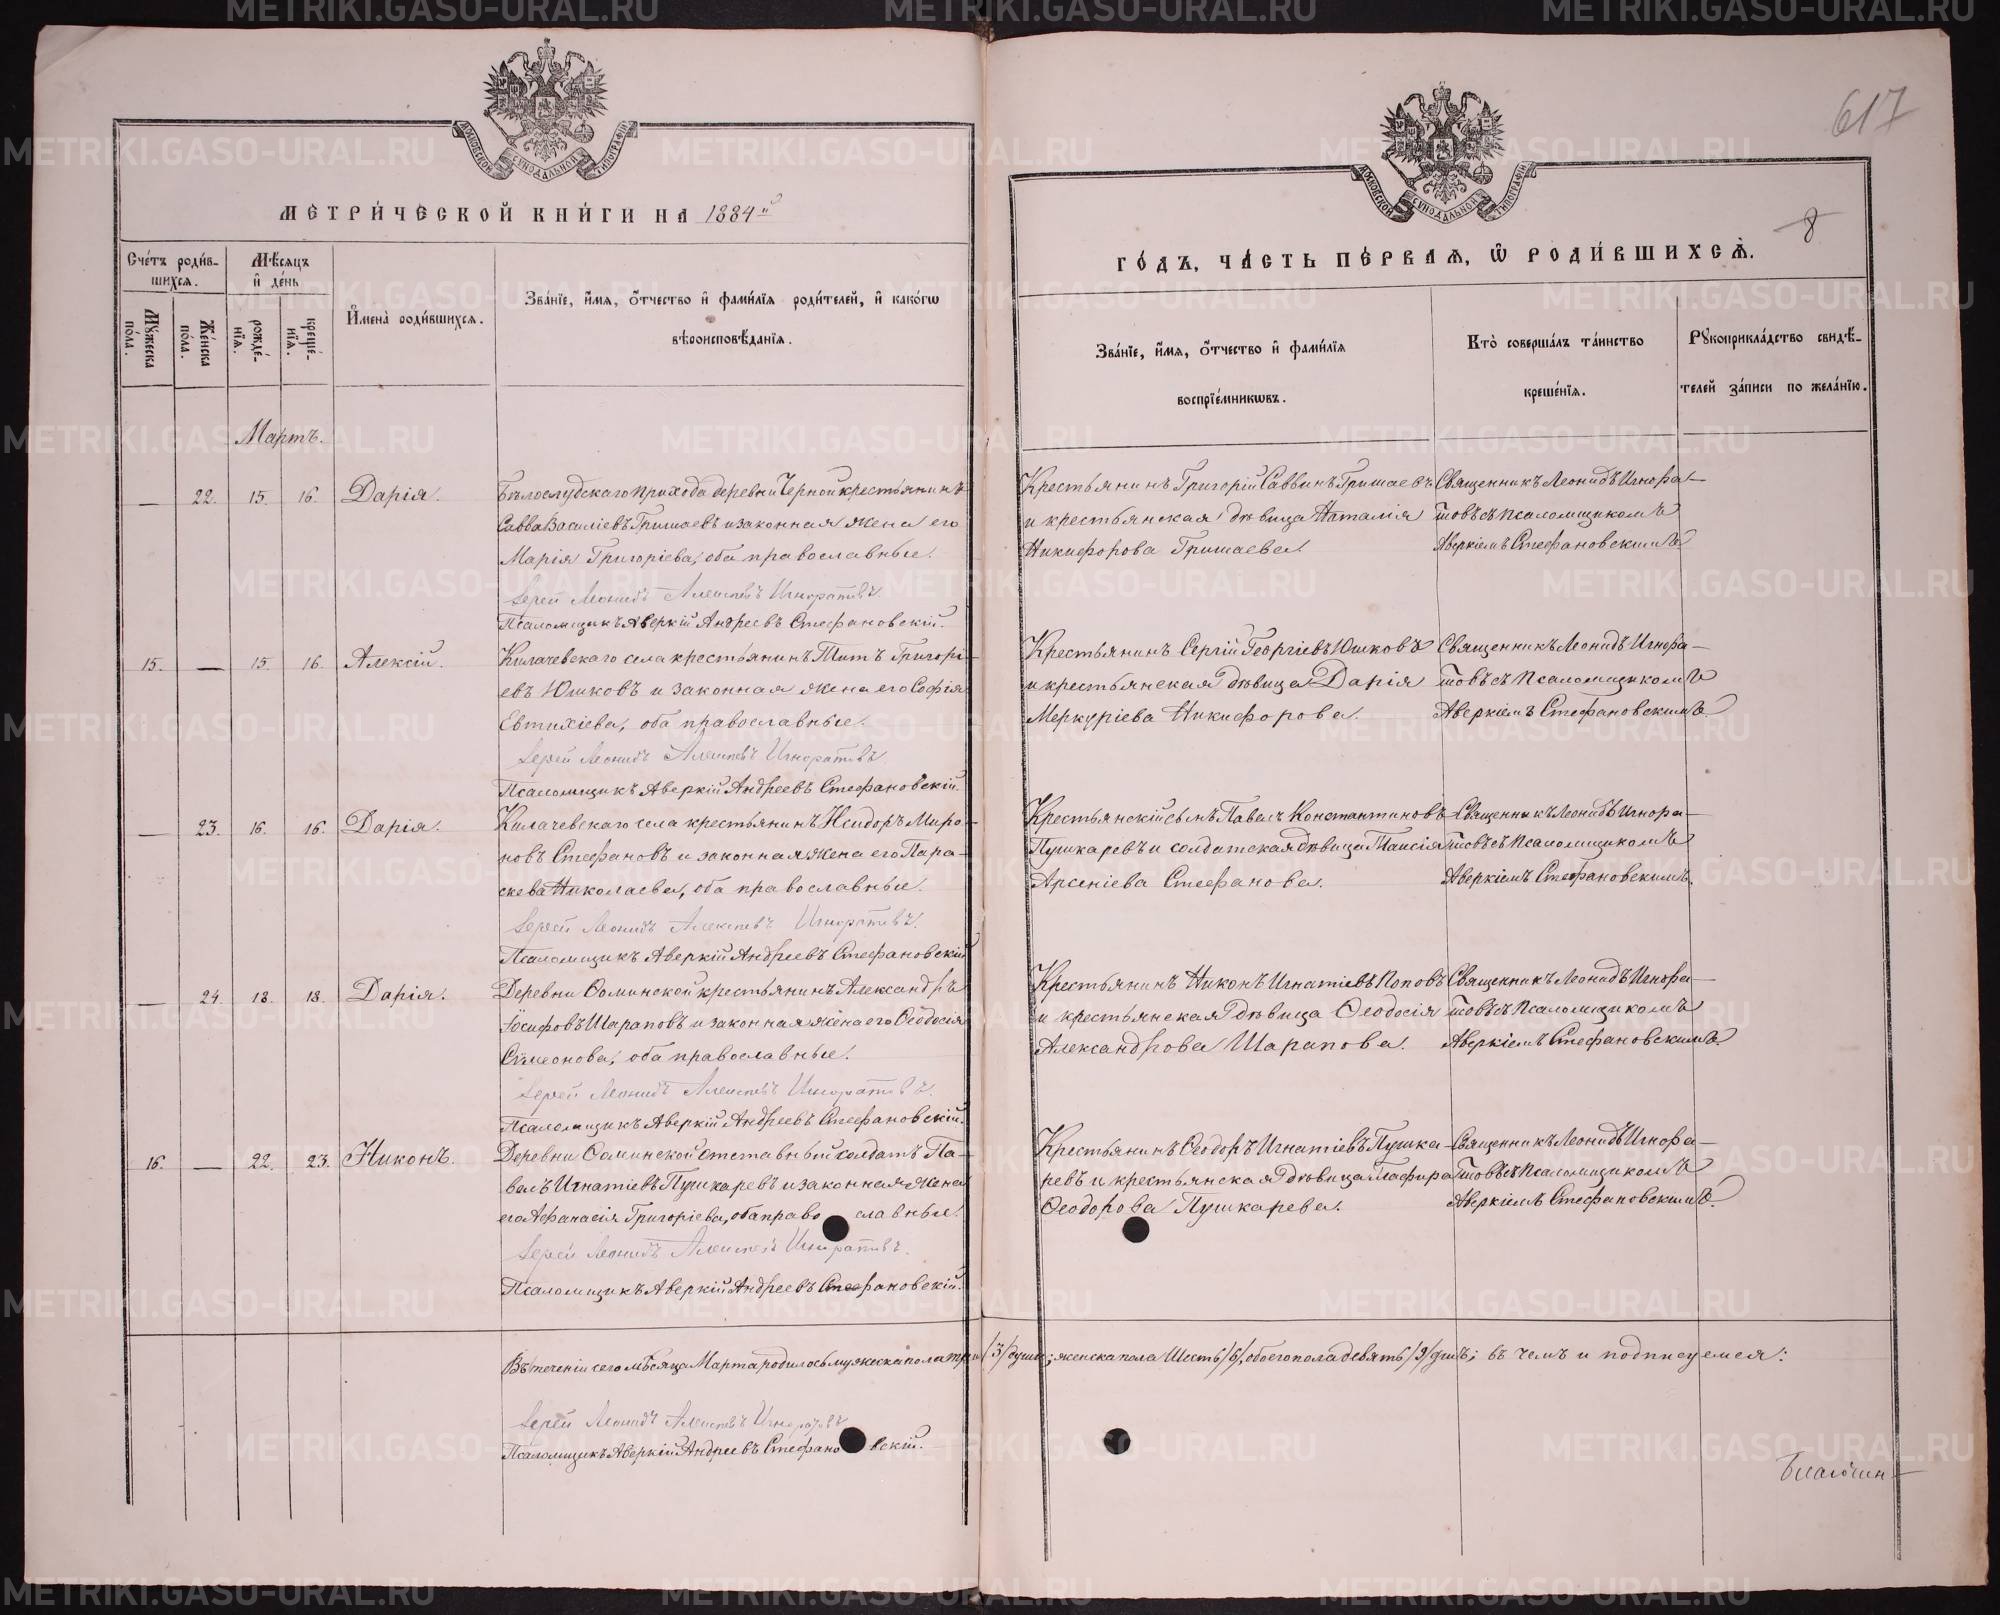 617
МОСКОВСКОЙ СУНОДАЛЬНОЙ ТИПОГРАФІИ
МЕТРИ́ЧЕСКОЙ КНИ́ГИ НА 1884й
Сче́тъ роди́в-
шихсѧ.
Мѣ́сѧцъ
и҆ де́нь
Мꙋ́жеска по́ла.
Же́нска по́ла.
рожде́-нїѧ.
креще́-нїѧ.
И҆мена̀ роди́вшихсѧ.
Зва́нїе, и҆́мѧ, ѻ҆́тчество и҆ фами́лїѧ роди́телей, и҆ како́гѡ
вѣроисповѣ́данїѧ.
Мартъ.
— 22. 15. 16. Дарія.
Бѣлослудскаго прихода деревни Черной крестьянинъ
Савва Василіевъ Гришаевъ и законная жена его
Марія Григоріева, оба православные.
Іерей Леонидъ Алексѣевъ Игноратовъ
Псаломщикъ Аверкій Андреевъ Стефановскій.
15. — 15. 16. Алексій.
Килачевскаго села крестьянинъ Титъ Григорі-
евъ Юшковъ и законная жена его Софія
Евтихіева, оба православные.
Іерей Леонидъ Алексѣевъ Игноратовъ
Псаломщикъ Аверкій Андреевъ Стефановскій.
— 23. 16. 16. Дарія.
Килачевскаго села крестьянинъ Исидоръ Миро-
новъ Стефановъ и законная жена его Пара-
скева Николаева, оба православные.
Іерей Леонидъ Алексѣевъ Игноратовъ.
Псаломщикъ Аверкій Андреевъ Стефановскій
— 24. 18. 18. Дарія.
Деревни Ѳоминской крестьянинъ Александръ
Іосифовъ Шараповъ и законная жена его Ѳеодосія
Симеонова, оба православные.
Іерей Леонидъ Алексѣевъ Игноратовъ.
Псаломщикъ Аверкій Андреевъ Стефановскій.
16. — 22. 23. Никонъ.
Деревни Ѳоминской отставный солдатъ Па-
велъ Игнатіевъ Пушкаревъ и законная жена
его Афанасія Григоріева, оба православные.
Іерей Леонидъ Алексѣевъ Игноратовъ.
Псаломщикъ Аверкій Андреевъ Стефановскій.
Въ теченіи сего мѣсяца Марта родилось мужеска пола три /3/ душъ; женска пола Шесть /6/, обоего пола девять /9/ душъ; въ чемъ и подписуемся:
Іерей Леонидъ Алексѣевъ Игноратовъ
Псаломщикъ Аверкій Андреевъ Стефановскій.
МОСКОВСКОЙ СУНОДАЛЬНОЙ ТИПОГРАФІИ
8
ГО́ДЪ, ЧА́СТЬ ПЕ́РВАѦ, Ѡ҆ РОДИ́ВШИХСѦ.
Зва́нїе, и҆́мѧ, ѻ҆́тчество и҆ фами́лїѧ
воспрїе́мникѡвъ.
Кто̀ соверша́лъ та́инство
креще́нїѧ.
Рꙋкоприкла́дство свидѣ́-
телей за́писи по жела́нїю.
Крестьянинъ Григорій Саввинъ Гришаевъ
и крестьянская дѣвица Наталія
Никифорова Гришаева.
Священникъ Леонидъ Игнора-
товъ съ Псаломщикомъ
Аверкіемъ Стефановскимъ
Крестьянинъ Сергій Георгіевъ Юшковъ
и крестьянская дѣвица Дарія
Меркуріева Никифорова.
Священникъ Леонидъ Игнора-
товъ съ Псаломщикомъ
Аверкіемъ Стефановскимъ.
Крестьянскій сынъ Павелъ Константиновъ
Пушкаревъ и солдатская дѣвица Таисія
Арсеніева Стефанова.
Священникъ Леонидъ Игнора-
товъ съ Псаломщикомъ
Аверкіемъ Стефановскимъ.
Крестьянинъ Никонъ Игнатіевъ Поповъ
и крестьянская дѣвица Ѳеодосія
Александрова Шарапова.
Священникъ Леонидъ Игнора-
товъ съ Псаломщикомъ
Аверкіемъ Стефановскимъ.
Крестьянинъ Ѳеодоръ Игнатіевъ Пушка-
ревъ и крестьянская дѣвица Глафира
Ѳеодорова Пушкарева.
Священникъ Леонидъ Игнора-
товъ съ Псаломщикомъ
Аверкіемъ Стефановскимъ.
Благочин-
METRIKI.GASO-URAL.RU